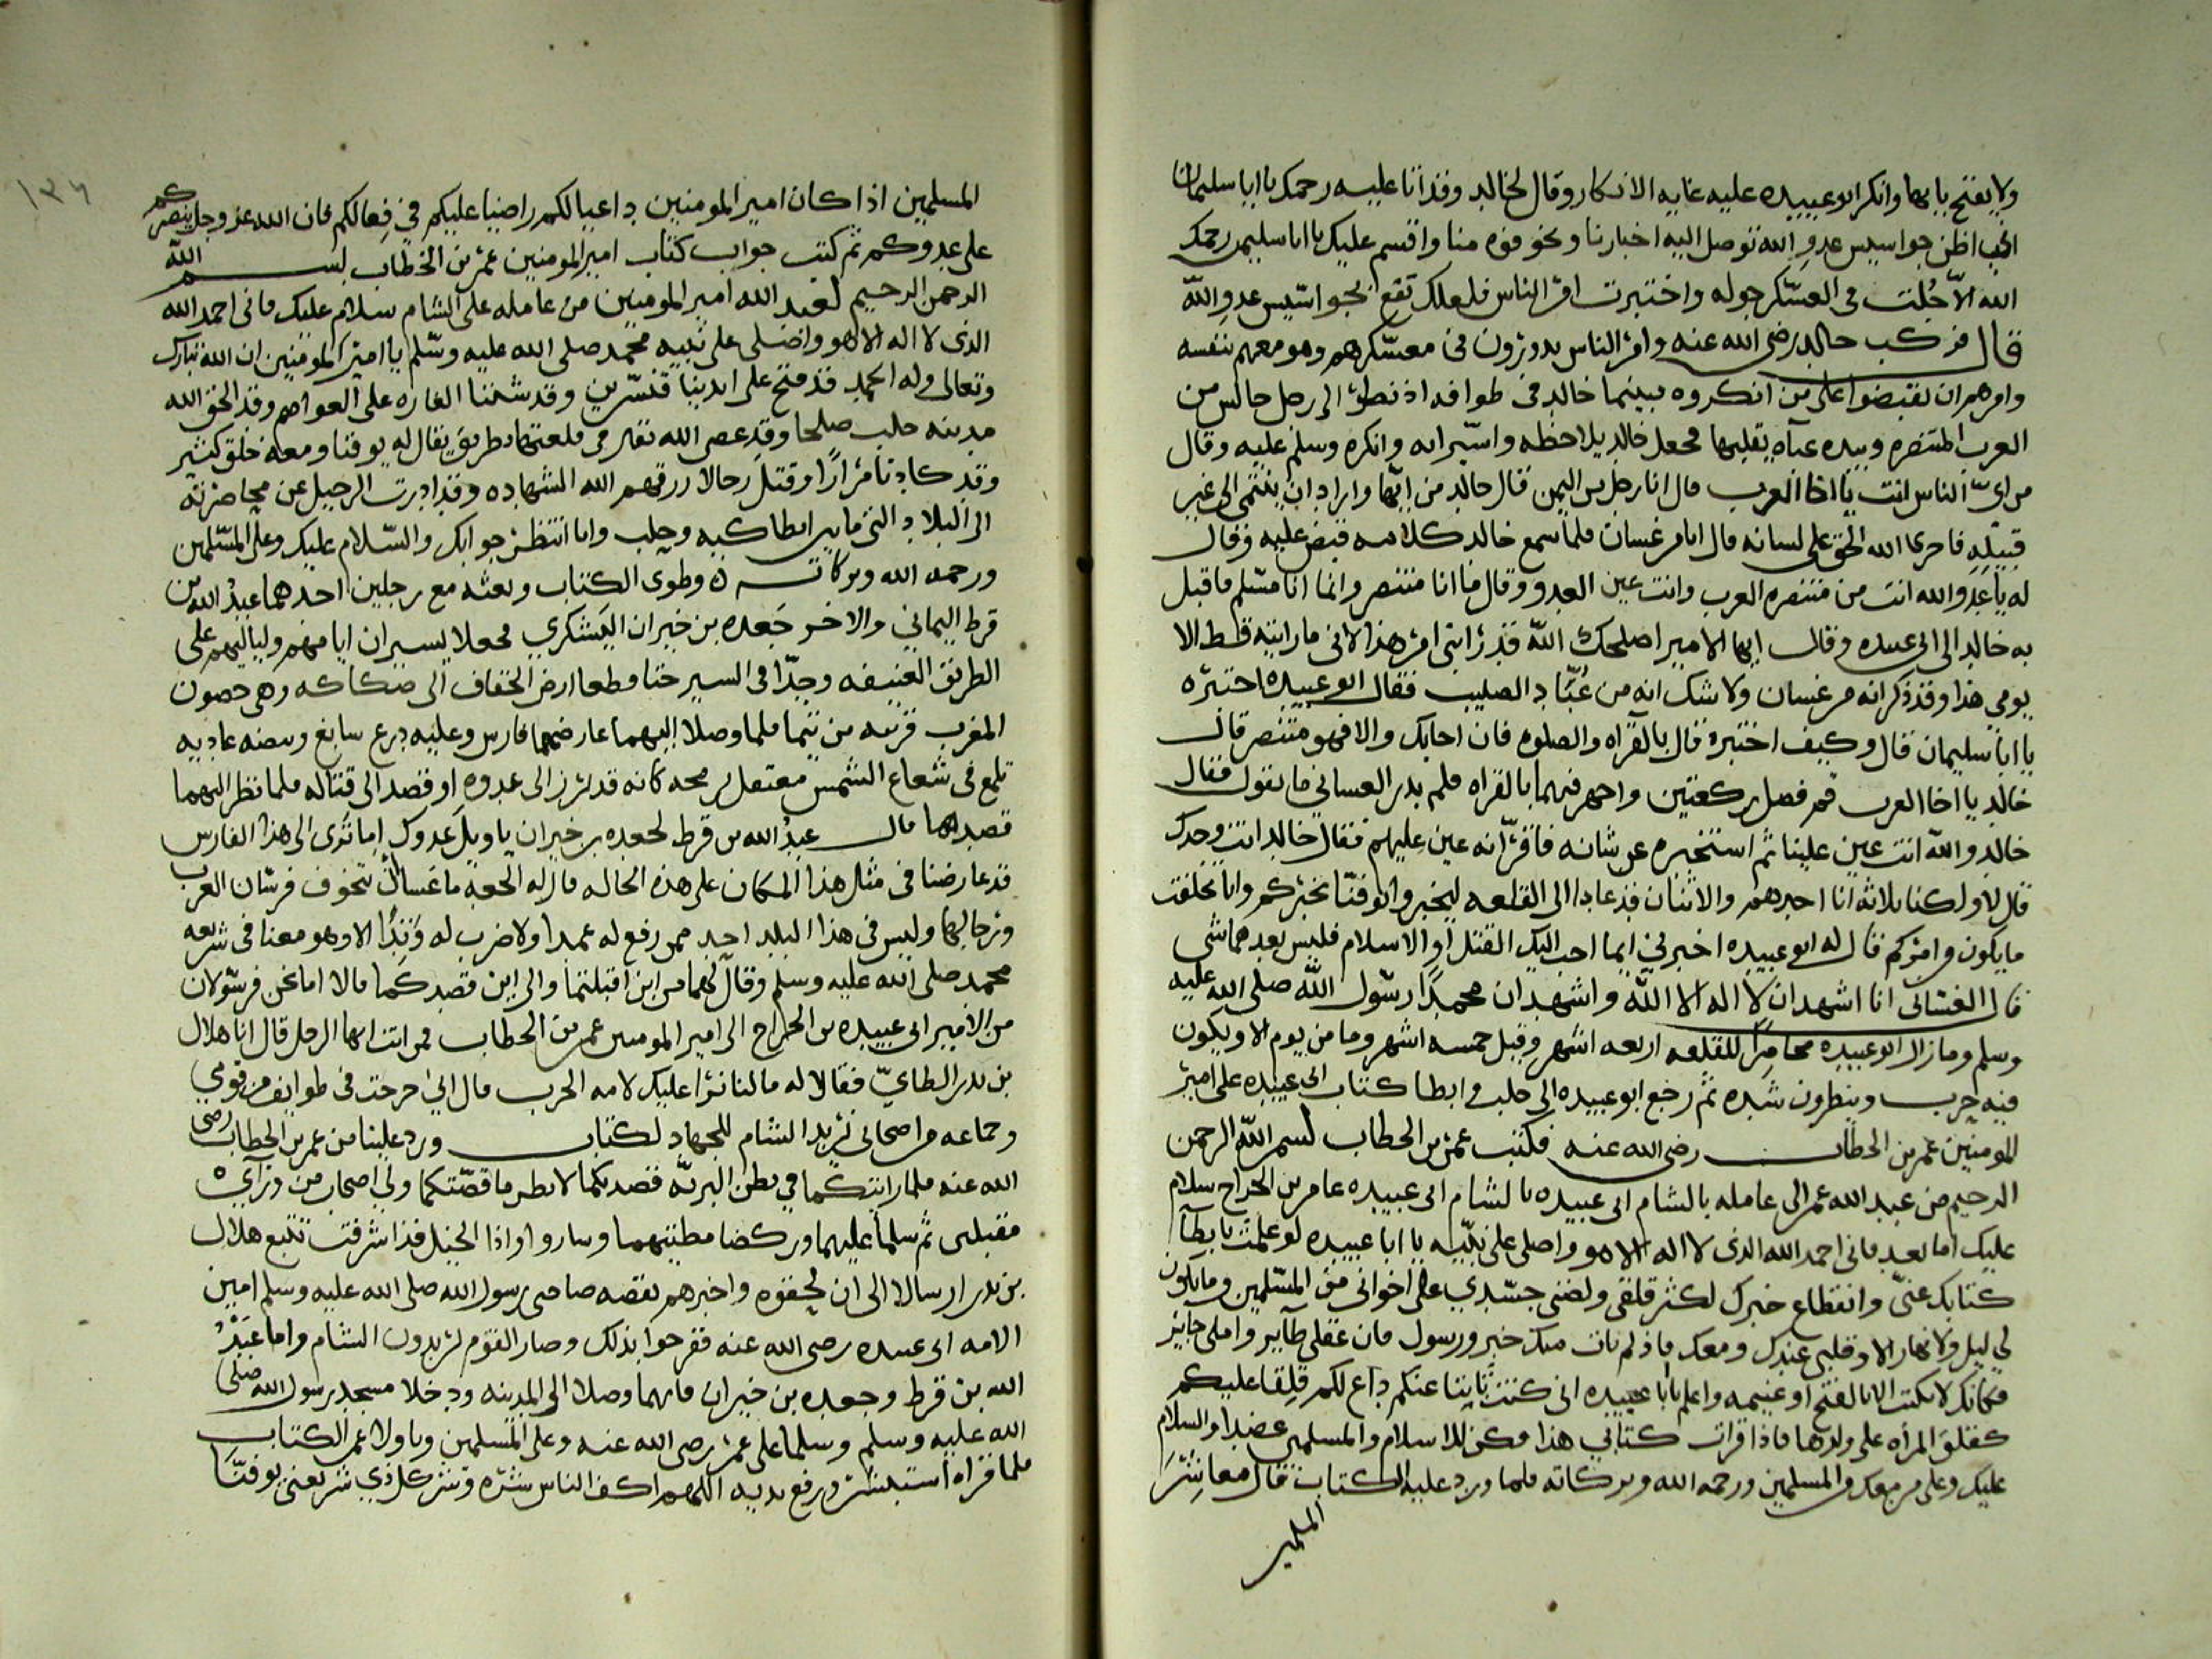 ولا يفتح بابها وانكر ابو عبيده عليه غايه الانكار وقال لخالد وقد انا عليه رحمك يا ابا سليمان
اظن جواسيس عدو الله توصل اليه اخبارنا ونحو منا واقسم عليك يا ابا سليمن رحمك
الله الا جلت في العسكر جوله واختبرت امر الناس فلعلك تقع بجواسيس عدو الله
قال فركب خالد رضى الله عنه وامر الناس يدورون في معسكرهم وهو معهم بنفسه
وامرهم ان يقبضوا على من انكروه فبينما خالد في طوافه اذ نظر الى رجل جالس من
العرب المتنصره وبيده عباه يقلبها فجعل خالد يلاحظه وانكره وسلم عليه وقال
من اى الناس انت يا اخا العرب قال انا رجل من اليمن قال خالد من ايها واراد ان ينتمى الى غير
قبيله فاجرى الله الحق على لسانه قال انا من غسان فلما سمع خالد كلامه قبض عليه وقال
له يا عدو الله انت من متنصره العرب وانت عين العدو وقال ما انا متنصر وانما انا مسلم فاقبل
به خالد الى ابى عبيده وقال ايها الامير اصلحك الله قد رابنى امر هذا لانى ما رايته قط الا
يومي هذا وقد ذكر انه من غسان ولا شك انه من عباد الصليب فقال ابو عبيده اختبره
يا ابا سليمان قال وكيف اختبره قال بالقراه والصلوه فان اجابك والا فهو متنصر قال
خالد يا اخا العرب قم فصل ركعتين واجهر فيهما بالقراه فلم يدر الغساني ما يقول فقال
خالد والله انت عين علينا ثم استخبره عن شانه فاقر انه عين عليهم فقال خالد انت وحدك
قال لا ولكنا ثلاثه انا احدهم والاثنان قد عادا الى القلعه ليخبروا يوقنا بخبركم وانا تخلفت
ما يكون من امركم قال له ابو عبيده اخبرني ايما احب اليك القتل او الاسلام فليس بعدهما شى
قال الغسانى انا اشهد ان لا اله الا الله واشهد ان محمدا رسول الله صلى الله عليه
وسلم وما زال ابو عبيده محاصرا للقلعه اربعه اشهر وقيل خمسه اشهر وما من يوم الا ويكون
فيه حرب وينظرون شده ثم رجع ابو عبيده الى حلب وابطا كتاب ابى عبيده على امير
المومنين عمر بن الخطاب رضى الله عنه فكتب عمر بن الخطاب بسم الله الرحمن
الرحيم من عبد الله عمر الى عامله بالشام ابى عبيده بالشام ابى عبيده عامر بن الجراح سلام
عليك اما بعد فانى احمد الله الذى لا اله الا هو واصلى على نبيه يا ابا عبيده لو علمت بابطآ
كتابك عنى وانقطاع خبرك لكثر قلقى ولضنى جسدي على اخوانى من المسلمين وما يكون
لي ليل ولا نهار الا وقلبى عندك ومعك فاذ لم يات منك خبر ورسول فان عقلى طاير واملى حاير
فكانك لا تكتب الا بالفتح او غنيمه واعلم يا ابا عبيده انى كنت نايبا عنكم داع لكم قلقا عليكم
كقلق المراه على ولدها فاذا قرات كتابي هذا فكن للاسلام والمسلمين عضدا والسلام
عليك وعلى من معك من المسلمين ورحمه الله وبركاته فلما ورد عليه الكتاب قال معاشر
المسلمين
١٣٦
المسلمين اذا كان امير المومنين داعيا لكم راضيا عليكم في فعالكم فان الله عز وجل ينصركم
على عدوكم ثم كتب جواب كتاب امير المومنين عمر بن الخطاب بسم الله
الرحمن الرحيم لعبد الله امير المومنين من عامله على الشام سلام عليك فانى احمد الله
الذى لا اله الا هو واصلى على نبيه محمد صلى الله عليه وسلم يا امير المومنين ان الله تبارك
وتعالى وله الحمد قد فتح على ايدينا قنسرين وقد شننا الغاره على العواصم وقد الله
مدينه حلب صلحا وقد عصى الله تعالى في قلعتها بطريق يقال له يوقنا ومعه خلق كثير
وقد كادنا مرارا وقتل رجالا رزقهم الله الشهاده وقد اردت الرحيل عن محاصرته
الى البلاد التى ما بين انطاكيه وحلب وانا انتظر جوابك والسلام عليك وعلى المسلمين
ورحمه الله وبركاته وطوى الكتاب وبعثه مع رجلين احدهما عبد الله بن
قرط اليماني والاخر جعده بن خيران اليشكري فجعلا يسيران ايامهم ولياليهم على
الطريق العنيفه وجدا في السير حتا قطعا ارض الخفاف الى صكاكه وهى حصون
المغرب قريبه من تيما فلما وصلا اليهما عارضهما فارس وعليه درع سابغ وبيضه عاديه
تلمع في شعاع الشمس معتقل برمحه كانه قد برز الى عدوه او قصد الى قتاله فلما نظر اليهما
قصدهما قال عبد الله بن قرط لجعده بن خيران يا ويل عدوك اما ترى الى هذا الفارس
قد عارضنا في مثل هذا المكان على هذه الحاله قال له الجعد ما عسا ان تتخوف فرسان العرب
ورجالها وليس في هذا البلد احد ممن رفع له عمدا ولا ضرب له وتدا الا وهو معنا في شريعه
محمد صلى الله عليه وسلم وقال لهما من اين اقبلتما والى اين قصدكما قالا اما نحن فرسولان
من الامير ابى عبيده بن الجراح الى امير المومنين عمر بن الخطاب فمن انت ايها الرجل قال انا هلال
بن بدر الطاي فقالا له ما لنا نرا عليك لامه الحرب قال انى خرجت في طوايف من قومي
وجماعه من اصحابى نريد الشام للجهاد لكتاب ورد علينا من عمر بن الخطاب رضى
الله عنه فلما رايتكما في بطن البريه قصدتكما لانظر ما قصتكما ولي اصحاب من وراي
مقبلين ثم سلما عليهما وركضا مطيتيهما وساروا واذا الخيل قد اشرقت تتبع هلال
بن بدر ارسالا الى ان لحقوه واخبرهم بقصه صاحبى رسول الله صلى الله عليه وسلم امين
الامه ابى عبيده رضى الله عنه ففرحوا بذلك وصار القوم يريدون الشام واما عبد
الله بن قرط وجعده بن خيران فانهما وصلا الى المدينه ودخلا مسجد رسول الله صلى
الله عليه وسلم وسلما على عمر رضى الله عنه وعلى المسلمين وناولا عمر الكتاب
فلما قراه استبشر ورفع يديه اللهم اكف الناس شره وشر كل ذي شر يعنى يوقنا